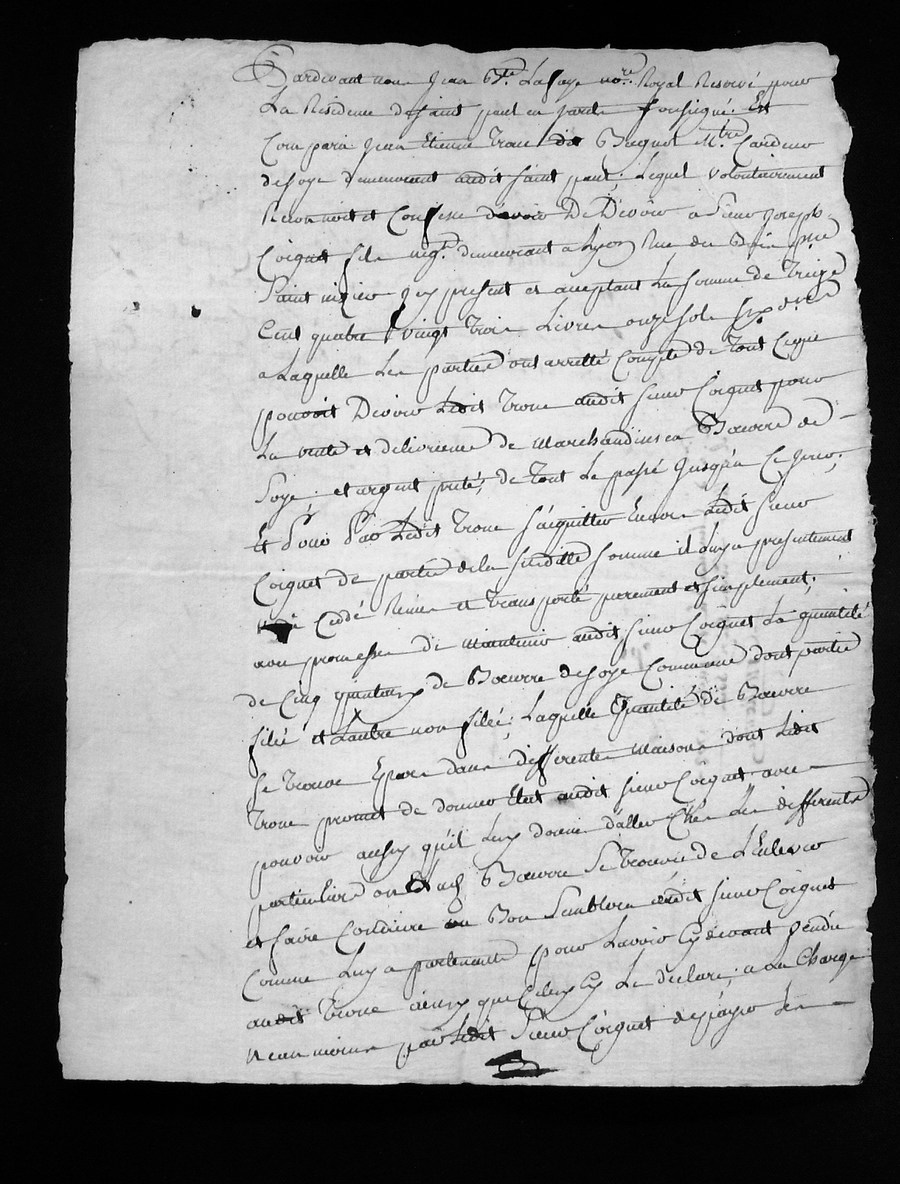 Pardevant nous Jean Bte. Lafaye nore. Royal Reservé pour
La Residence de saint paul en Jarets soussigné. Est
Comparu Jean Etienne Trone dit Baguet Mtre Cardeur
de soye demeurant audit saint paul; Lequel volontairement
Reconnoit et Confesse devoir De Devoir a sieur Joseph
Coignet fils negt. demeurant a Lyon Rue du Bois
Saint nizier Icy present et acceptant La somme de Treize
Cent quatre vingt Trois Livres onze sols six
a Laquelle Les parties ont arretté Compte de Tout Ce que
pouvoit Devoir Ledit Trone audit sieur Coignet pour
La vente et delivrance de Marchandises en Bourre de
Soye; et argent preté; de Tout Le passé Jusqu'a Ce Jour;
Et Pour Par Ledit Trone s'acquitter Envers Ledit sieur
Coignet de partie de la susditte somme il luy a presentement
Cedé Remis et Transporté purement et simplement;
avec promesse de maintenir audit sieur Coignet La quantité
de Cinq quintaux de Bourre de soye Commune dont partie
filée et Lautre non filée; Laquelle Quantité de Bourre
se Trouve Eparse dans differentes Maisons dont Ledit
Trone promet de donner Etat audit sieur Coignet avec
pouvoir aussy qu'il Luy donne d'aller Chez Les differents
particuliers ou Bourre se trouvera de L'enlever
et faire Conduire ou Bon Semblera audit sieur Coignet
Comme Luy apartenante pour Lavoir Cy devant vendu
audit Trone ainsy que Celuy Cy Le declare; a La Charge
neanmoins par Ledit Sieur Coignet de payer Les